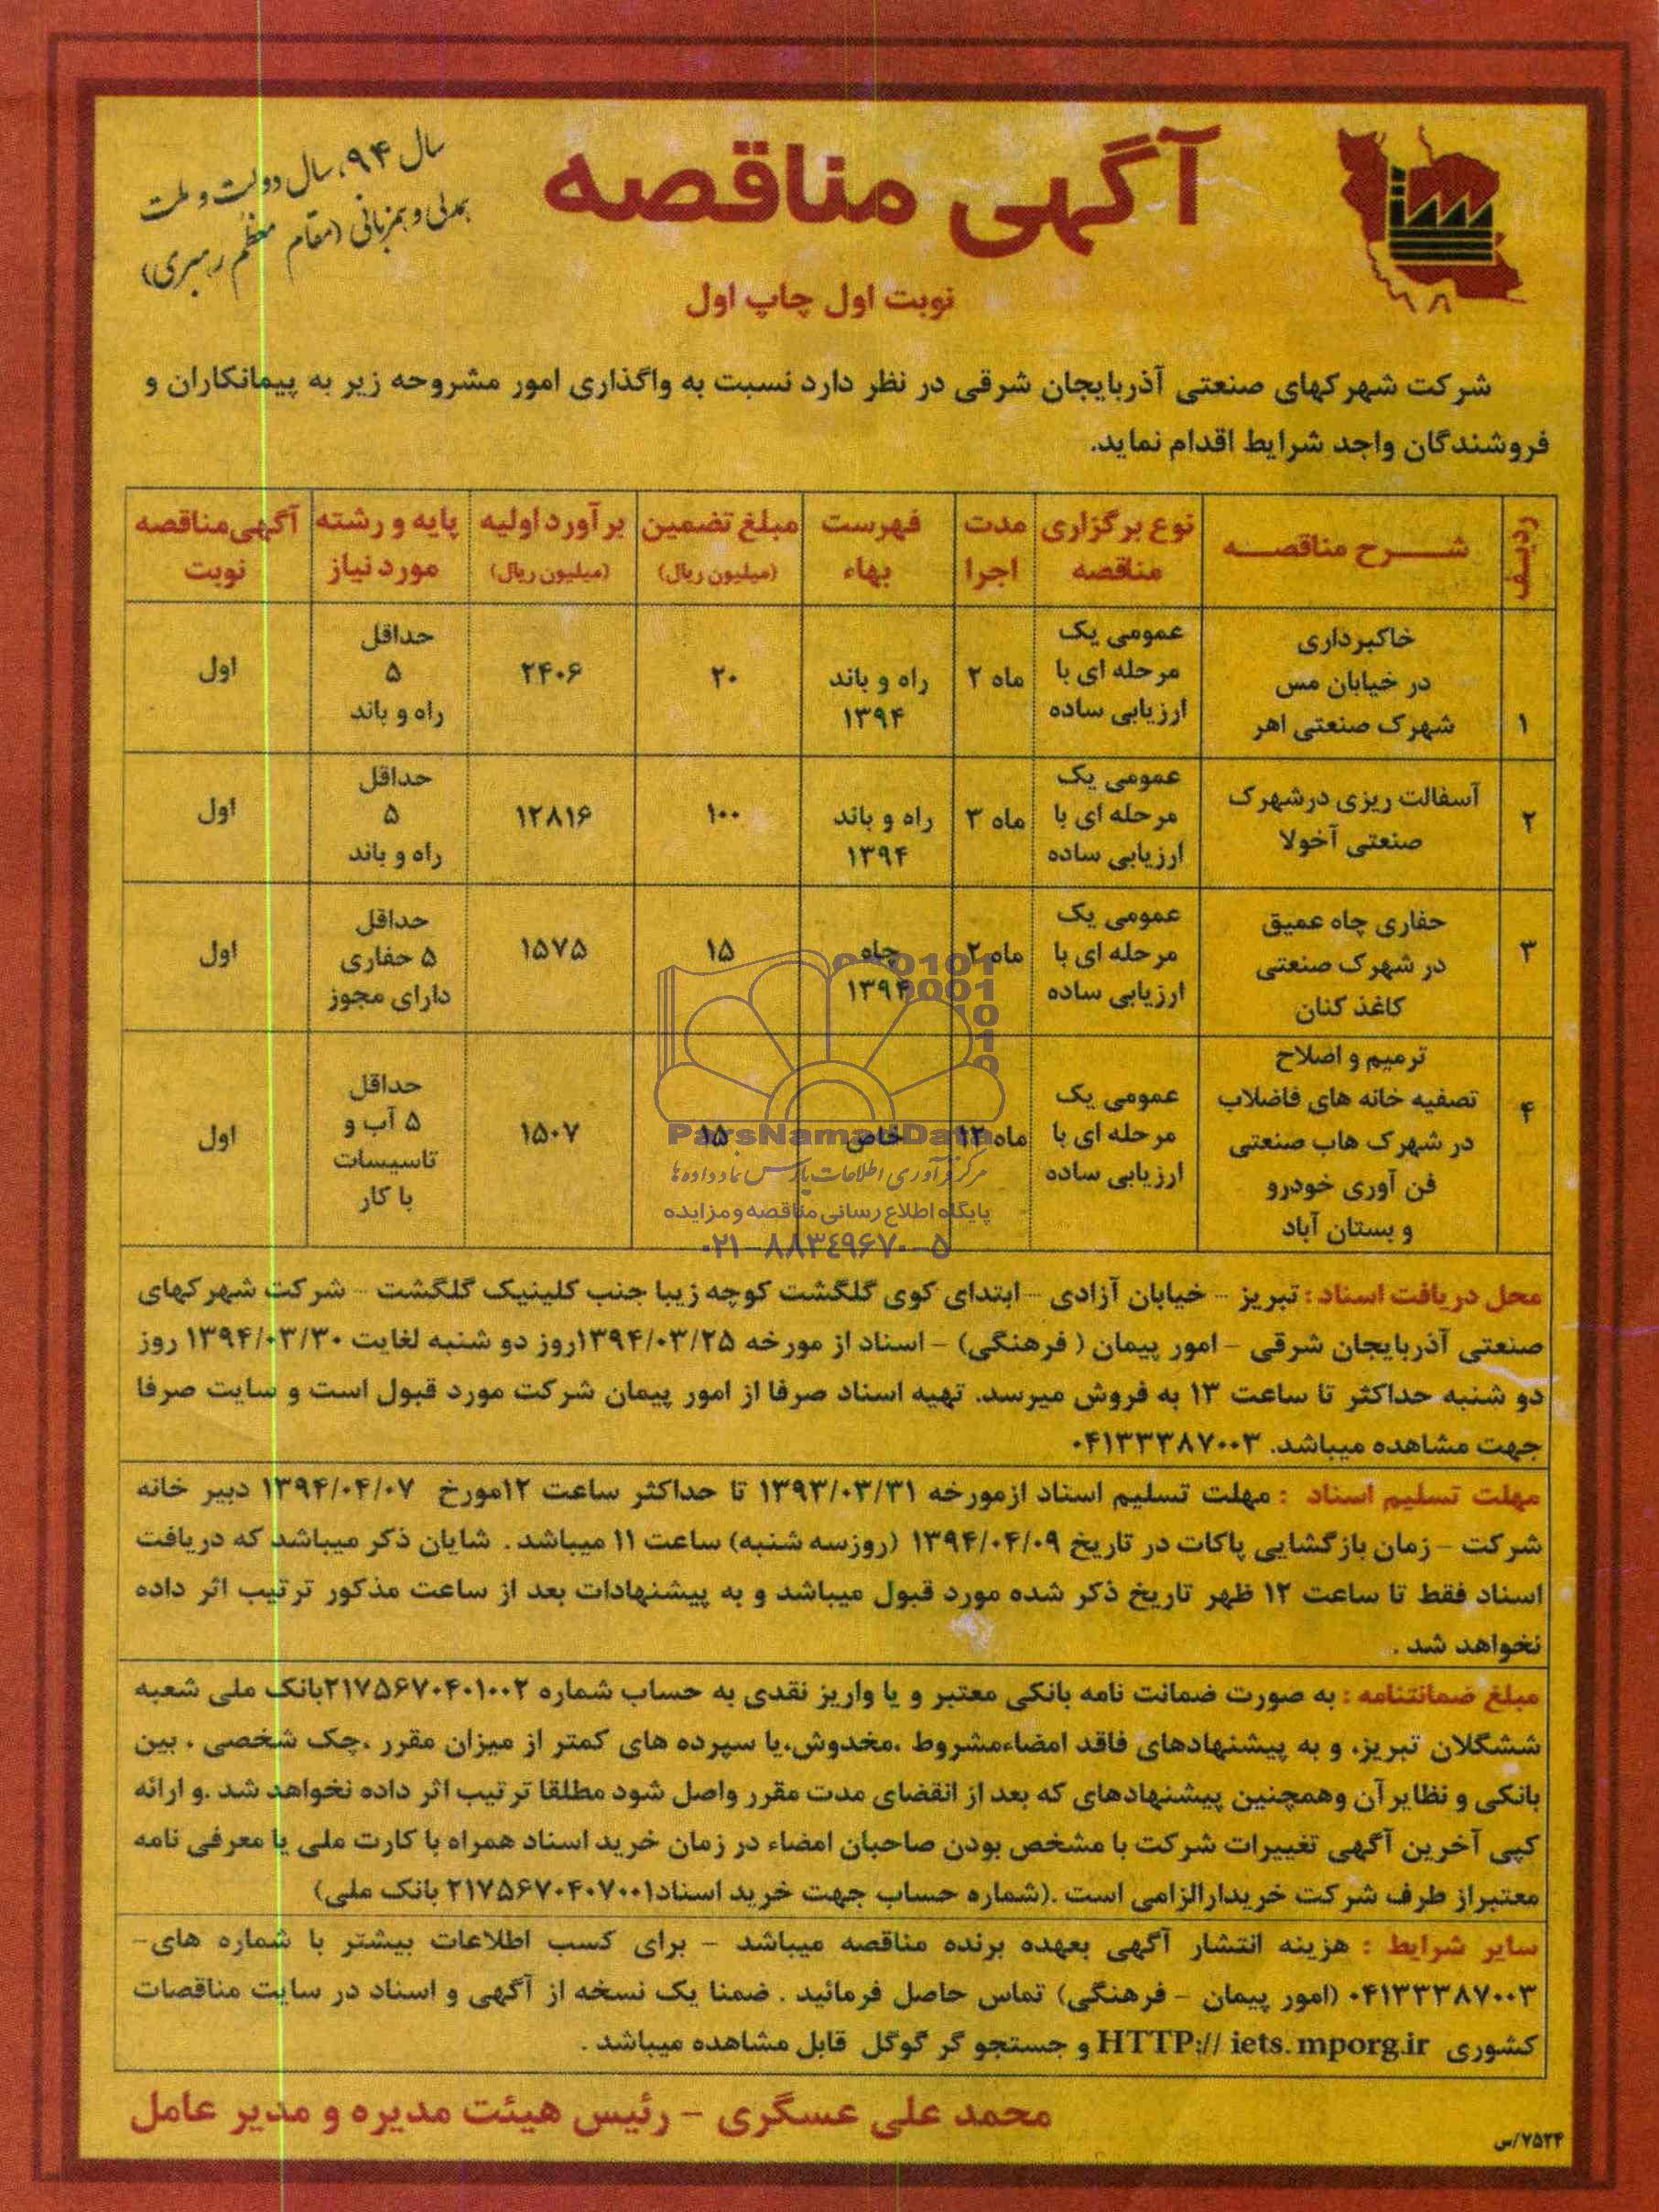 سال ۹۴، سال دولت و ملت
همدلی و همزبانی (مقام معظم رهبری)
آگهی مناقصه
نوبت اول چاپ اول
شرکت شهرکهای صنعتی آذربایجان شرقی در نظر دارد نسبت به واگذاری امور مشروحه زیر به پیمانکاران و
فروشندگان واجد شرایط اقدام نماید.
ردیف
شرح مناقصه
نوع برگزاری
مناقصه
مدت
اجرا
فهرست
بهاء
مبلغ تضمین
(میلیون ریال)
برآورد اولیه
(میلیون ریال)
پایه و رشته
مورد نیاز
آگهی مناقصه
نوبت
۱
خاکبرداری
در خیابان مس
شهرک صنعتی اهر
عمومی یک
مرحله ای با
ارزیابی ساده
۲ ماه
راه و باند
۱۳۹۴
۲۰
۲۴۰۶
حداقل
۵
راه و باند
اول
۲
آسفالت ریزی درشهرک
صنعتی آخولا
عمومی یک
مرحله ای با
ارزیابی ساده
۳ ماه
راه و باند
۱۳۹۴
۱۰۰
۱۲۸۱۶
حداقل
۵
راه و باند
اول
۳
حفاری چاه عمیق
در شهرک صنعتی
کاغذ کنان
عمومی یک
مرحله ای با
ارزیابی ساده
۲ ماه
چاه
۱۳۹۴
۱۵
۱۵۷۵
حداقل
۵ حفاری
دارای مجوز
اول
۴
ترمیم و اصلاح
تصفیه خانه های فاضلاب
در شهرک هاب صنعتی
فن آوری خودرو
و بستان آباد
عمومی یک
مرحله ای با
ارزیابی ساده
۱۲ ماه
خاص
۱۵
۱۵۰۷
حداقل
۵ آب و
تاسیسات
با کار
اول
ParsNamadData
مرکز فرآوری اطلاعات پارس نماد داده ها
پایگاه اطلاع رسانی مناقصه و مزایده
۰۲۱-۸۸۳۴۹۶۷۰-۵
محل دریافت اسناد : تبریز - خیابان آزادی - ابتدای کوی گلگشت کوچه زیبا جنب کلینیک گلگشت - شرکت شهرکهای
صنعتی آذربایجان شرقی - امور پیمان ( فرهنگی) - اسناد از مورخه ۱۳۹۴/۰۳/۲۵روز دو شنبه لغایت ۱۳۹۴/۰۳/۳۰ روز
دو شنبه حداکثر تا ساعت ۱۳ به فروش میرسد. تهیه اسناد صرفا از امور پیمان شرکت مورد قبول است و سایت صرفا
جهت مشاهده میباشد. ۰۴۱۳۳۳۸۷۰۰۳
مهلت تسلیم اسناد : مهلت تسلیم اسناد ازمورخه ۱۳۹۳/۰۳/۳۱ تا حداکثر ساعت ۱۲مورخ ۱۳۹۴/۰۴/۰۷ دبیر خانه
شرکت - زمان بازگشایی پاکات در تاریخ ۱۳۹۴/۰۴/۰۹ (روزسه شنبه) ساعت ۱۱ میباشد . شایان ذکر میباشد که دریافت
اسناد فقط تا ساعت ۱۲ ظهر تاریخ ذکر شده مورد قبول میباشد و به پیشنهادات بعد از ساعت مذکور ترتیب اثر داده
نخواهد شد .
مبلغ ضمانتنامه : به صورت ضمانت نامه بانکی معتبر و یا واریز نقدی به حساب شماره ۲۱۷۵۶۷۰۴۰۱۰۰۲بانک ملی شعبه
ششگلان تبریز، و به پیشنهادهای فاقد امضاءمشروط ،مخدوش،یا سپرده های کمتر از میزان مقرر ،چک شخصی ، بین
بانکی و نظایر آن وهمچنین پیشنهادهای که بعد از انقضای مدت مقرر واصل شود مطلقا ترتیب اثر داده نخواهد شد .و ارائه
کپی آخرین آگهی تغییرات شرکت با مشخص بودن صاحبان امضاء در زمان خرید اسناد همراه با کارت ملی یا معرفی نامه
معتبراز طرف شرکت خریدارالزامی است .(شماره حساب جهت خرید اسناد۲۱۷۵۶۷۰۴۰۷۰۰۱ بانک ملی)
سایر شرایط : هزینه انتشار آگهی بعهده برنده مناقصه میباشد - برای کسب اطلاعات بیشتر با شماره های-
۰۴۱۳۳۳۸۷۰۰۳ (امور پیمان - فرهنگی) تماس حاصل فرمائید . ضمنا یک نسخه از آگهی و اسناد در سایت مناقصات
کشوری HTTP:// iets.mporg.ir و جستجو گر گوگل قابل مشاهده میباشد .
محمد علی عسگری - رئیس هیئت مدیره و مدیر عامل
۷۵۲۴/س